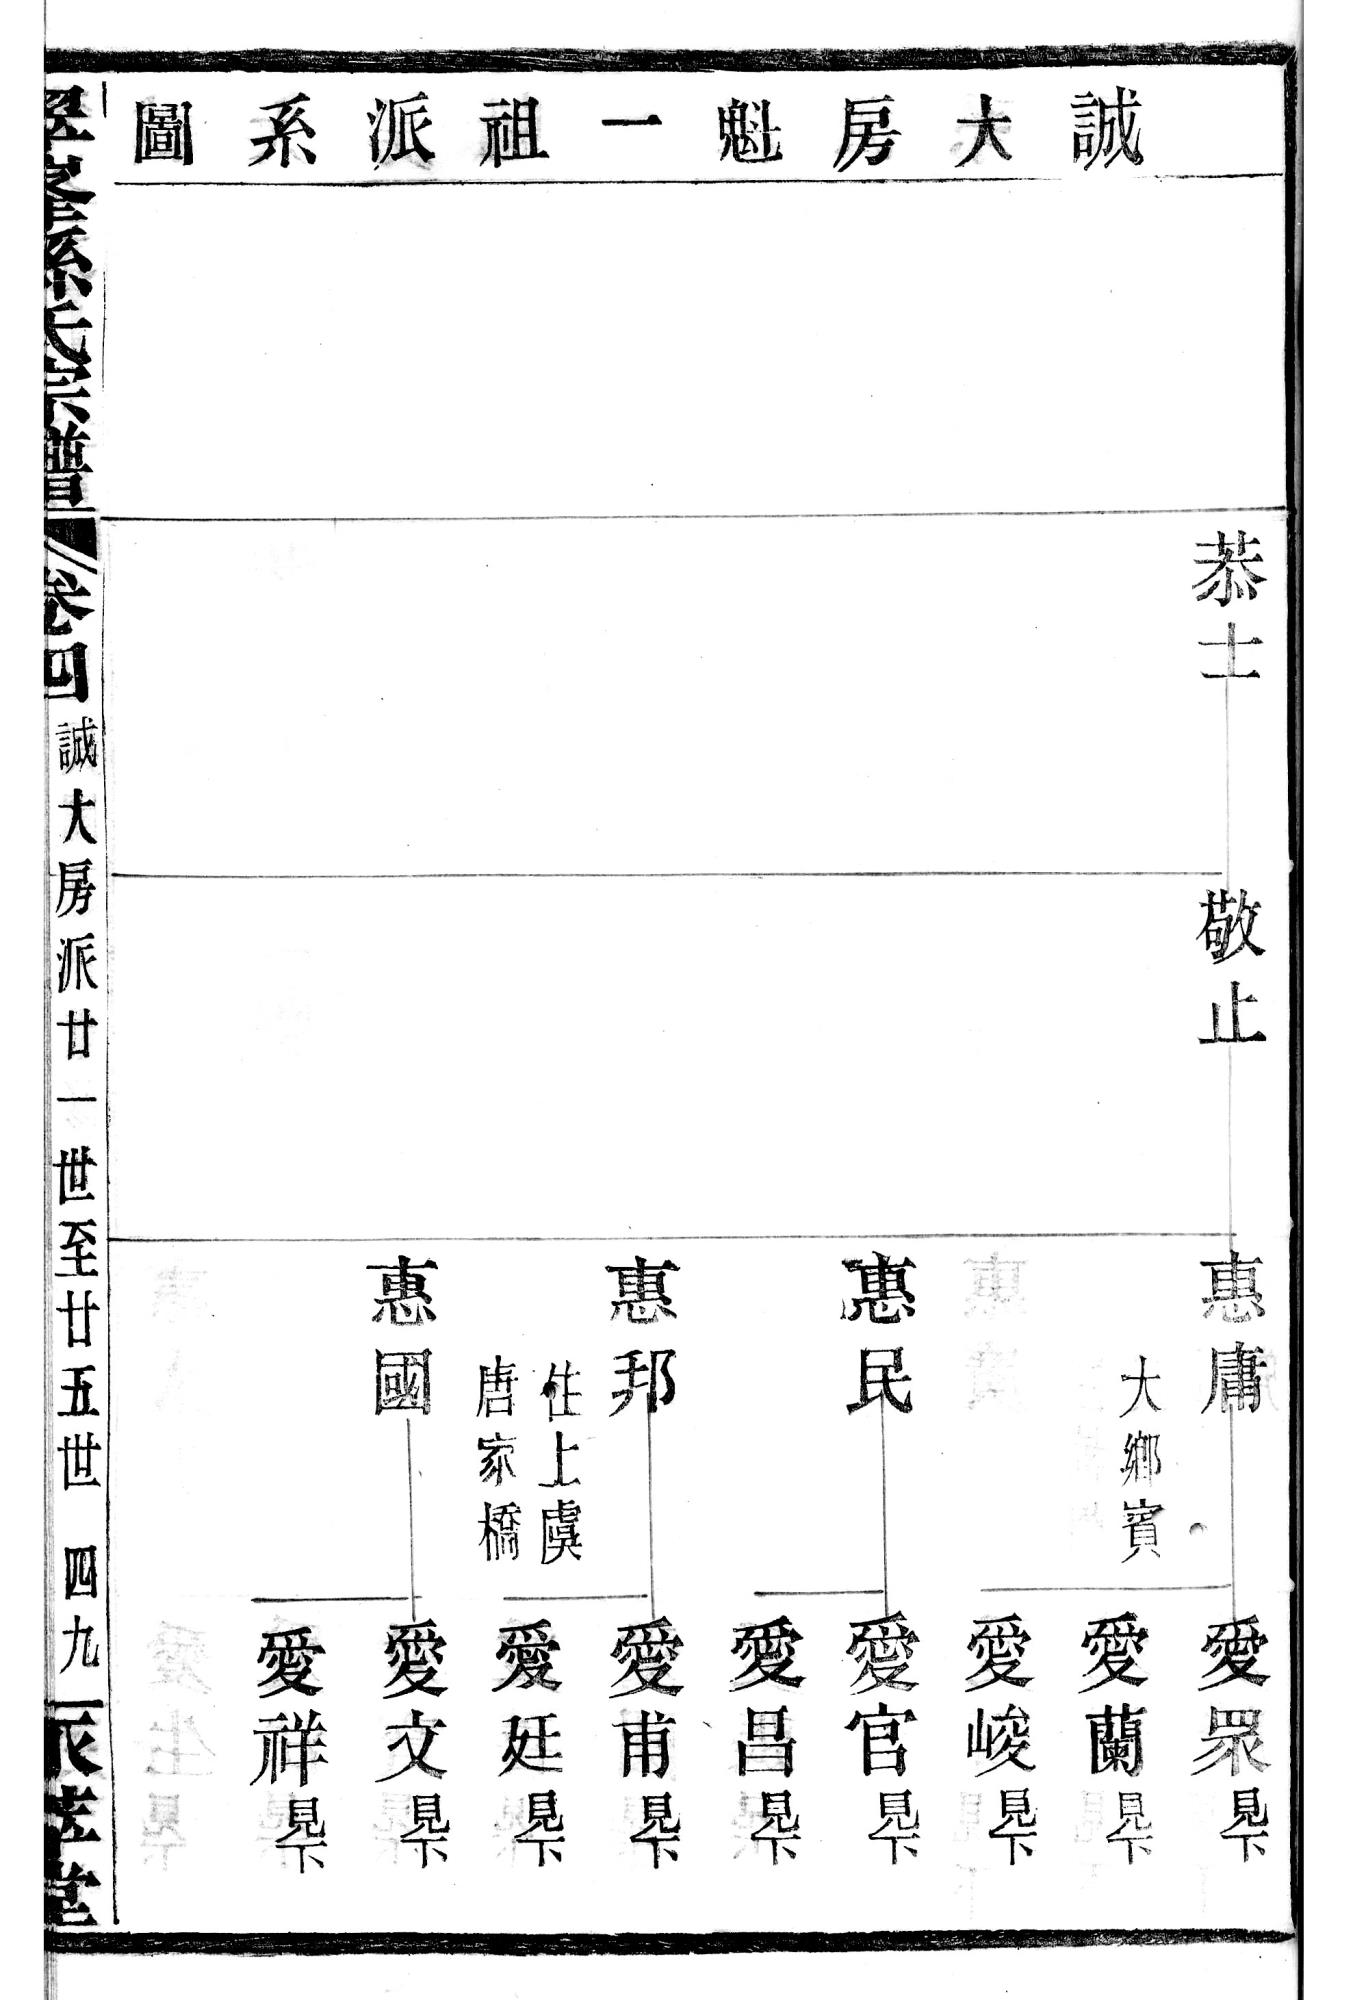 誠大房魁一祖派系圖
恭士
敬止
惠庸
大鄉賓
惠民
惠邦
住上虞
唐家橋
惠國
愛眾見下
愛蘭見下
愛峻見下
愛官見下
愛昌見下
愛甫見下
愛廷見下
愛文見下
愛祥見下
孫氏宗譜
卷四
誠大房派廿一世至廿五世 四九
堂